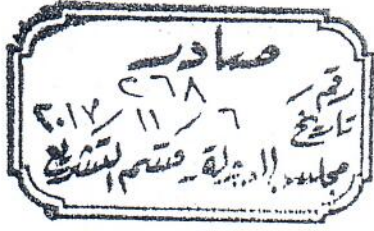 صادر
رقم ٢٦٨
تاريخ ٦ / ١١ / ٢٠١٧
مجلس الدولة - قسم التشريع